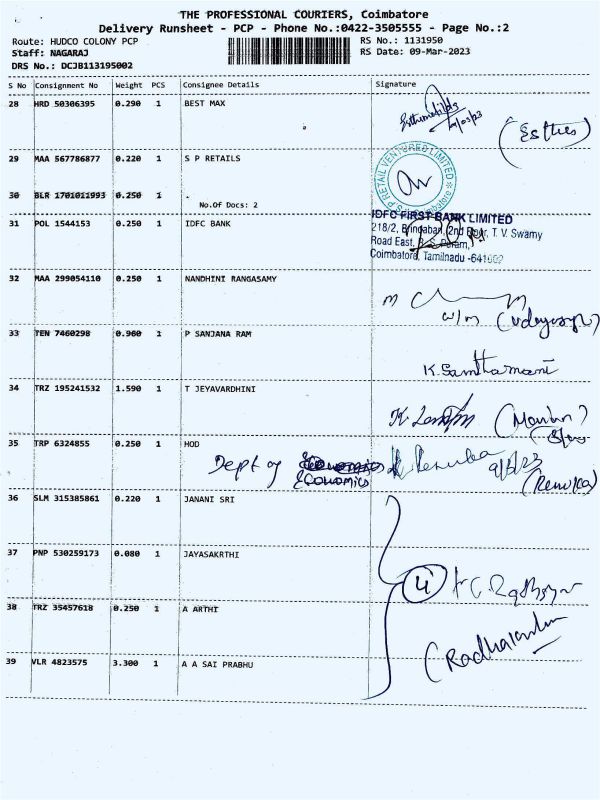 THE PROFESSIONAL COURIERS, Coimbatore
Delivery Runsheet - PCP - Phone No.:0422-3505555 - Page No.:2
Route: HUDCO COLONY PCP
RS No.: 1131950
Staff: NAGARAJ
RS Date: 09-Mar-2023
DRS No.: DCJB113195002
S No Consignment No Weight PCS Consignee Details Signature
28 HRD 50306395 0.290 1 BEST MAX
(Esther)
29 MAA 567786877 0.220 1 S P RETAILS
30 BLR 1701011993 0.250 1 .
No.Of Docs: 2
31 POL 1544153 0.250 1 IDFC BANK
IDFC FIRST BANK LIMITED
218/2, Brindaban, 2nd Floor, T. V. Swamy
Road East, R. S. Puram,
Coimbatore, Tamilnadu -641002
32 MAA 299054110 0.250 1 NANDHINI RANGASAMY
33 TEN 7460298 0.960 1 P SANJANA RAM
K. Santhamani
34 TRZ 195241532 1.590 1 T JEYAVARDHINI
35 TRP 6324855 0.250 1 HOD
Dept of Economics
9/3/23
(Renuka)
36 SLM 315385861 0.220 1 JANANI SRI
37 PNP 530259173 0.080 1 JAYASAKRTHI
4
38 TRZ 35457618 0.250 1 A ARTHI
39 VLR 4823575 3.300 1 A A SAI PRABHU